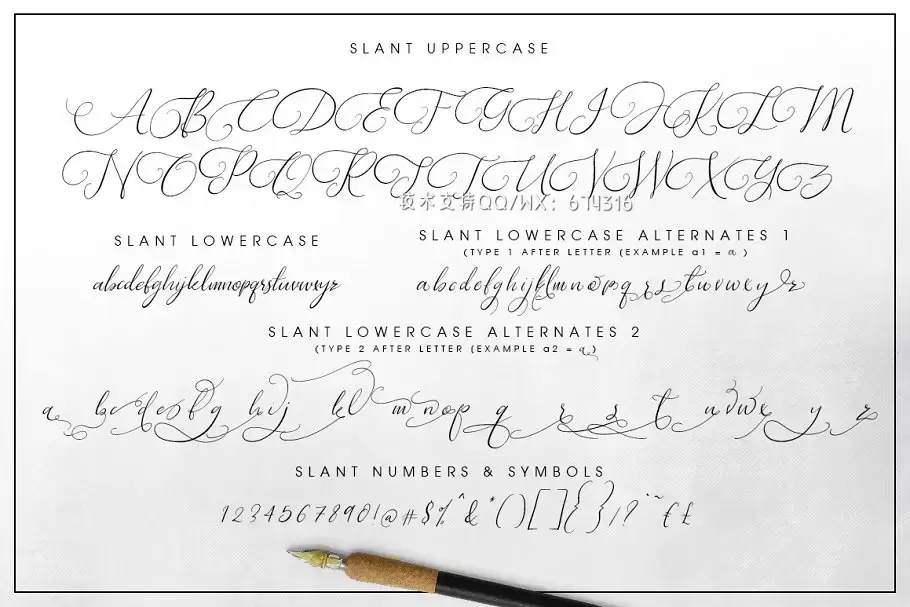 SLANT UPPERCASE
A B C D E F G H I J K L M
N O P Q R S T U V W X Y Z
技术支持QQ/WX: 674316
SLANT LOWERCASE
abcdefghijklmnopqrstuvwxyz
SLANT LOWERCASE ALTERNATES 1
(TYPE 1 AFTER LETTER (EXAMPLE a1 = a )
a b c d e f g h i j k l m n o p q r s t u v w x y z
SLANT LOWERCASE ALTERNATES 2
(TYPE 2 AFTER LETTER (EXAMPLE a2 = a )
a b c d e f g h i j k l m n o p q r s t u v w x y z
SLANT NUMBERS & SYMBOLS
1234567890!@#$%^&*()[]{}/?`~